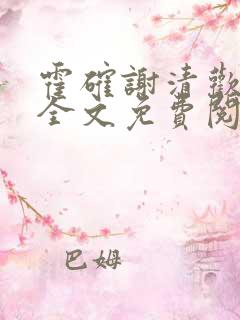 霍確謝清歡
全文免費閱
巴姆